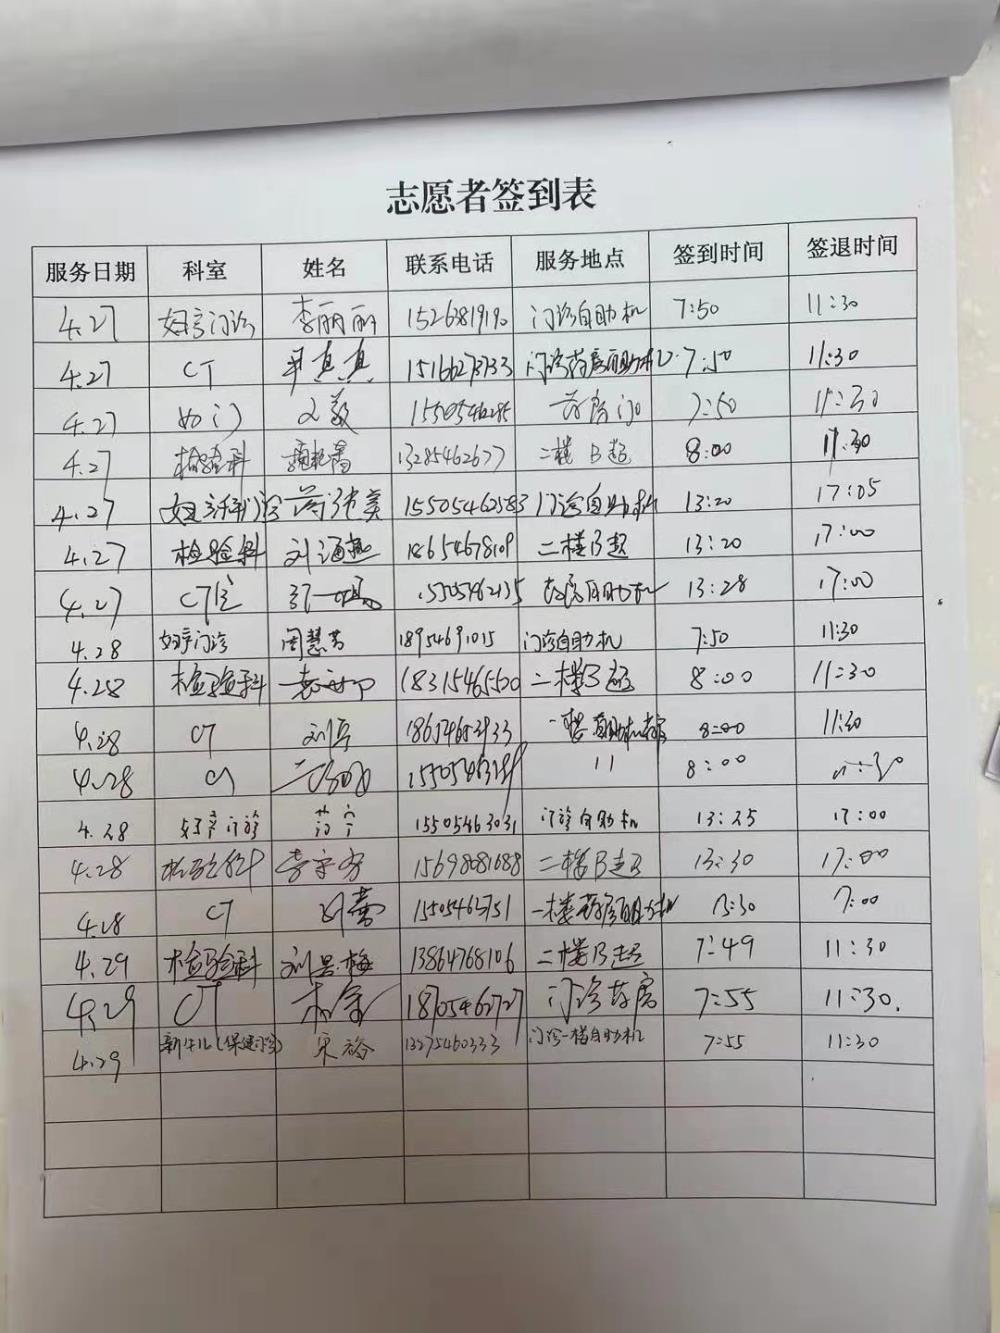 志愿者签到表
服务日期 科室 姓名 联系电话 服务地点 签到时间 签退时间
4.27 妇产门诊 李丽丽 15263819190 门诊自助机 7:50 11:30
4.27 CT 真真 门诊药房自助机 7:50 11:30
4.27 妇门 1550546285 药房门 7:50 11:30
4.27 检验科 13285462677 二楼B超 8:00 11:30
4.27 15505462583 门诊自助机 13:20 17:05
4.27 检验科 刘海燕 18654678109 二楼B超 13:20 17:00
4.27 CT室 15505462135 药房自助机 13:28 17:00
4.28 妇产门诊 周慧芳 18954691015 门诊自助机 7:50 11:30
4.28 检验科 18315465500 二楼B超 8:00 11:30
4.28 CT 8:00 11:30
4.28 〃 8:00 11:30
4.28 妇产门诊 15505463031 门诊自助机 13:25 17:00
4.28 检验科 15698081688 二楼B超 13:30 17:00
4.28 CT 15505462751 一楼药房自助机 13:30
4.29 检验科 刘景梅 13864768106 二楼B超 7:49 11:30
4.29 CT 18705462727 门诊药房 7:55 11:30.
4.29 新生儿(保健门诊) 宋裕 13275460333 门诊一楼自助机 7:55 11:30